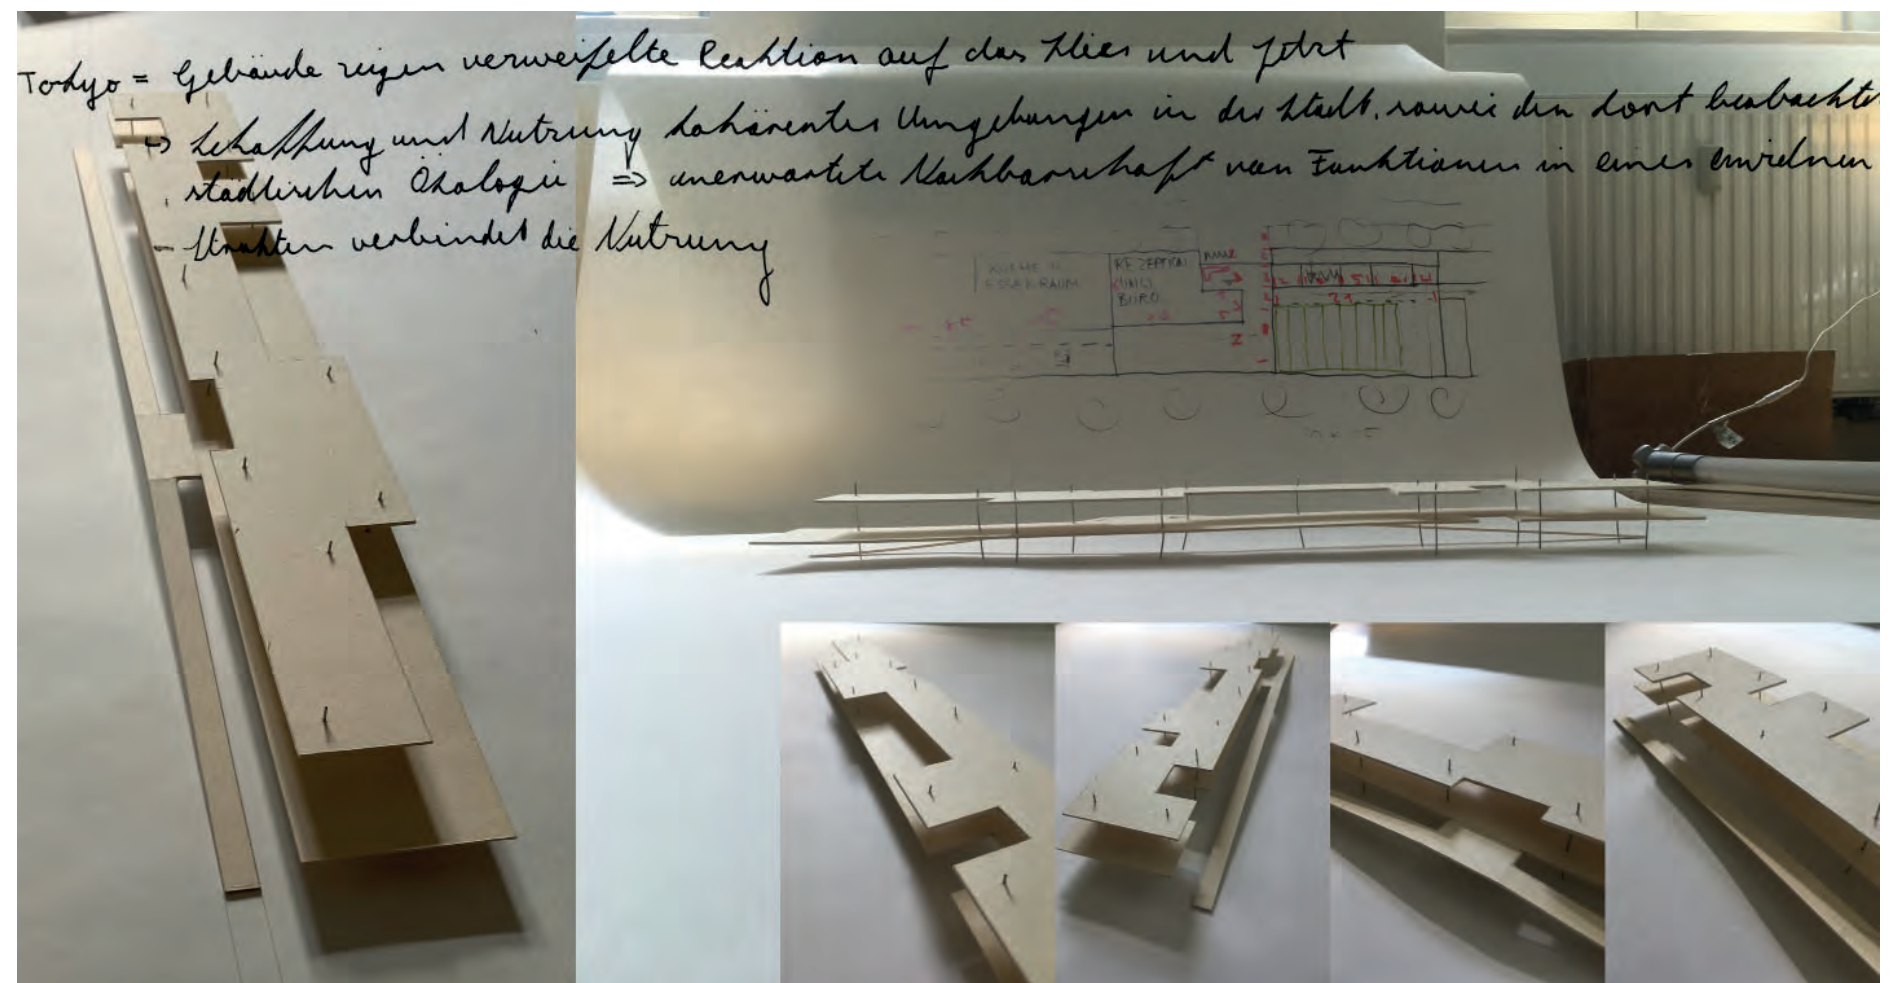 Tokyo = Gebäude zeigen verzweifelte Reaktion auf das Hier und Jetzt
↳ Schaffung und Nutzung kohärenter Umgebungen in der Stadt, sowie den dort beobachte
städtischen Ökologie ⇒ unerwartete Nachbarschaft von Funktionen in einer einzelnen
- Struktur verbindet die Nutzung
KÜCHE U.
ESSER RAUM
REZEPTION
UND
BÜRO